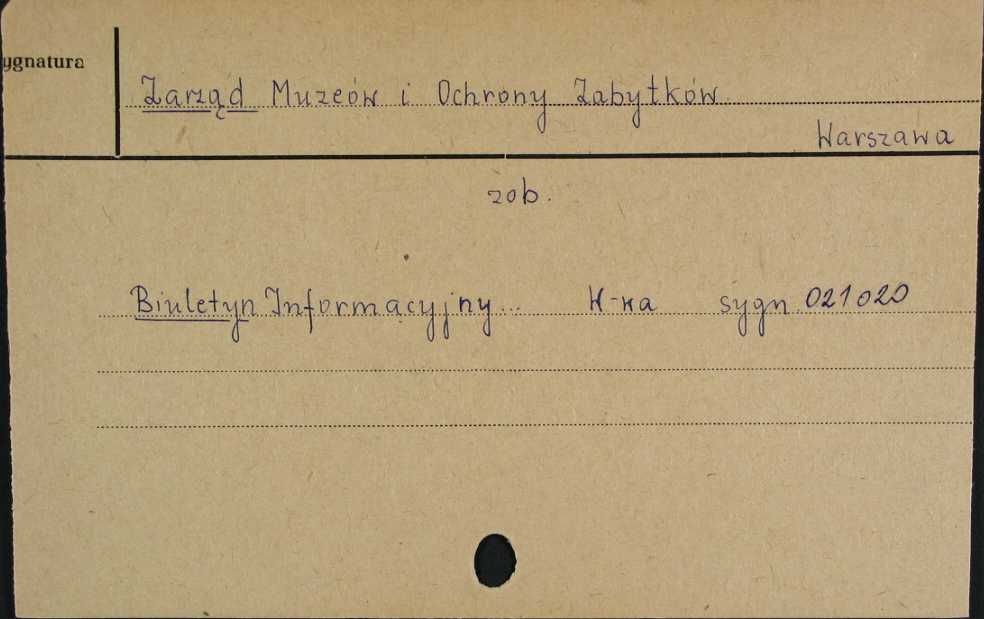 ygnatura
Zarząd Muzeów i Ochrony Zabytków
Warszawa
zob.
Biuletyn Informacyjny... W-wa sygn. 021020